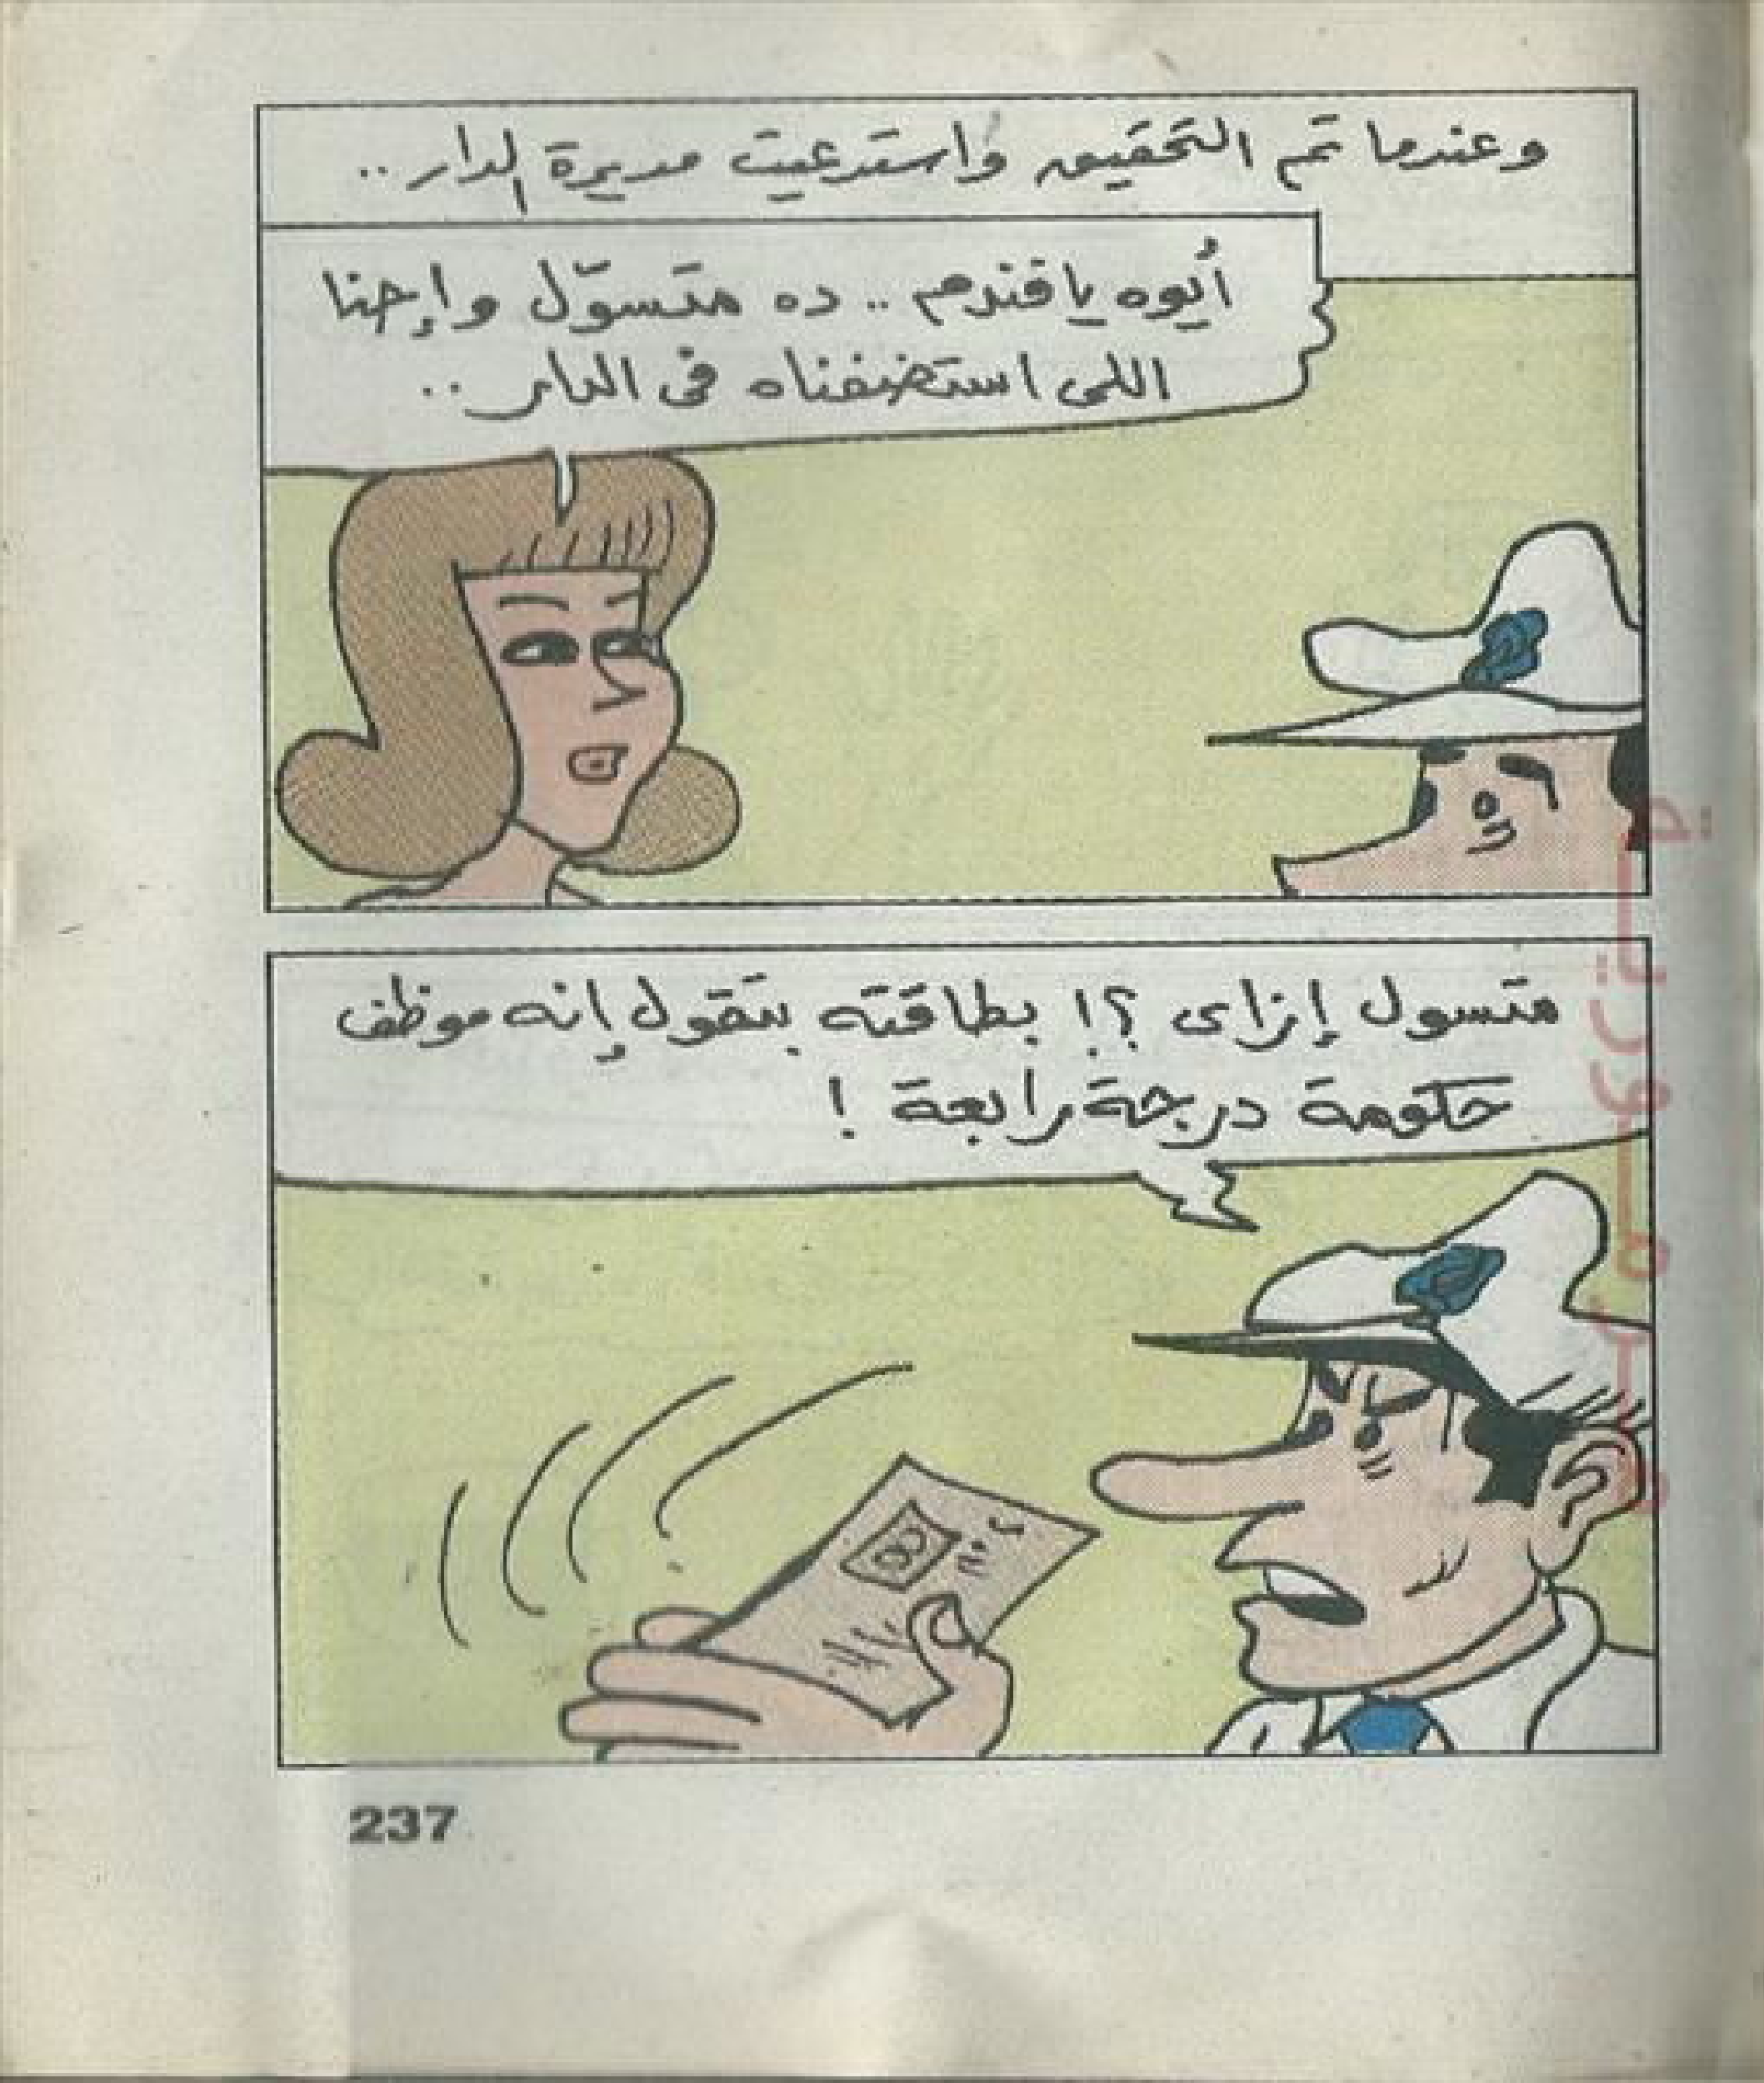 وعندما تم التحقيق واستدعيت مديرة الدار..
أيوه يا فندم .. ده متسوّل وإحنا
اللى استضفناه فى الدار ..
متسول إزاى ؟! بطاقته بتقول إنه موظف
حكومة درجة رابعة !
237